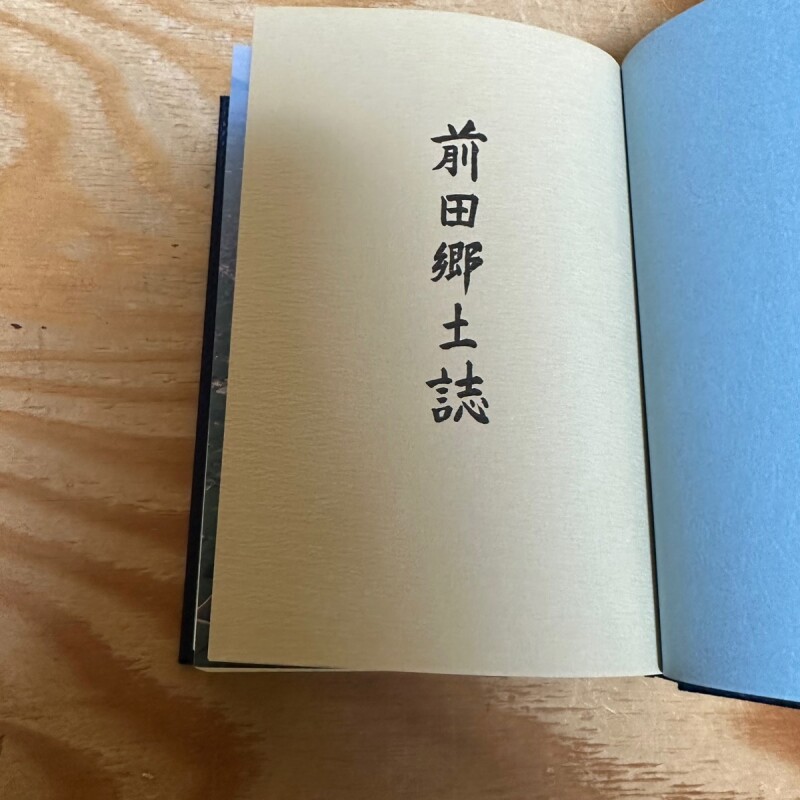 前田郷土誌